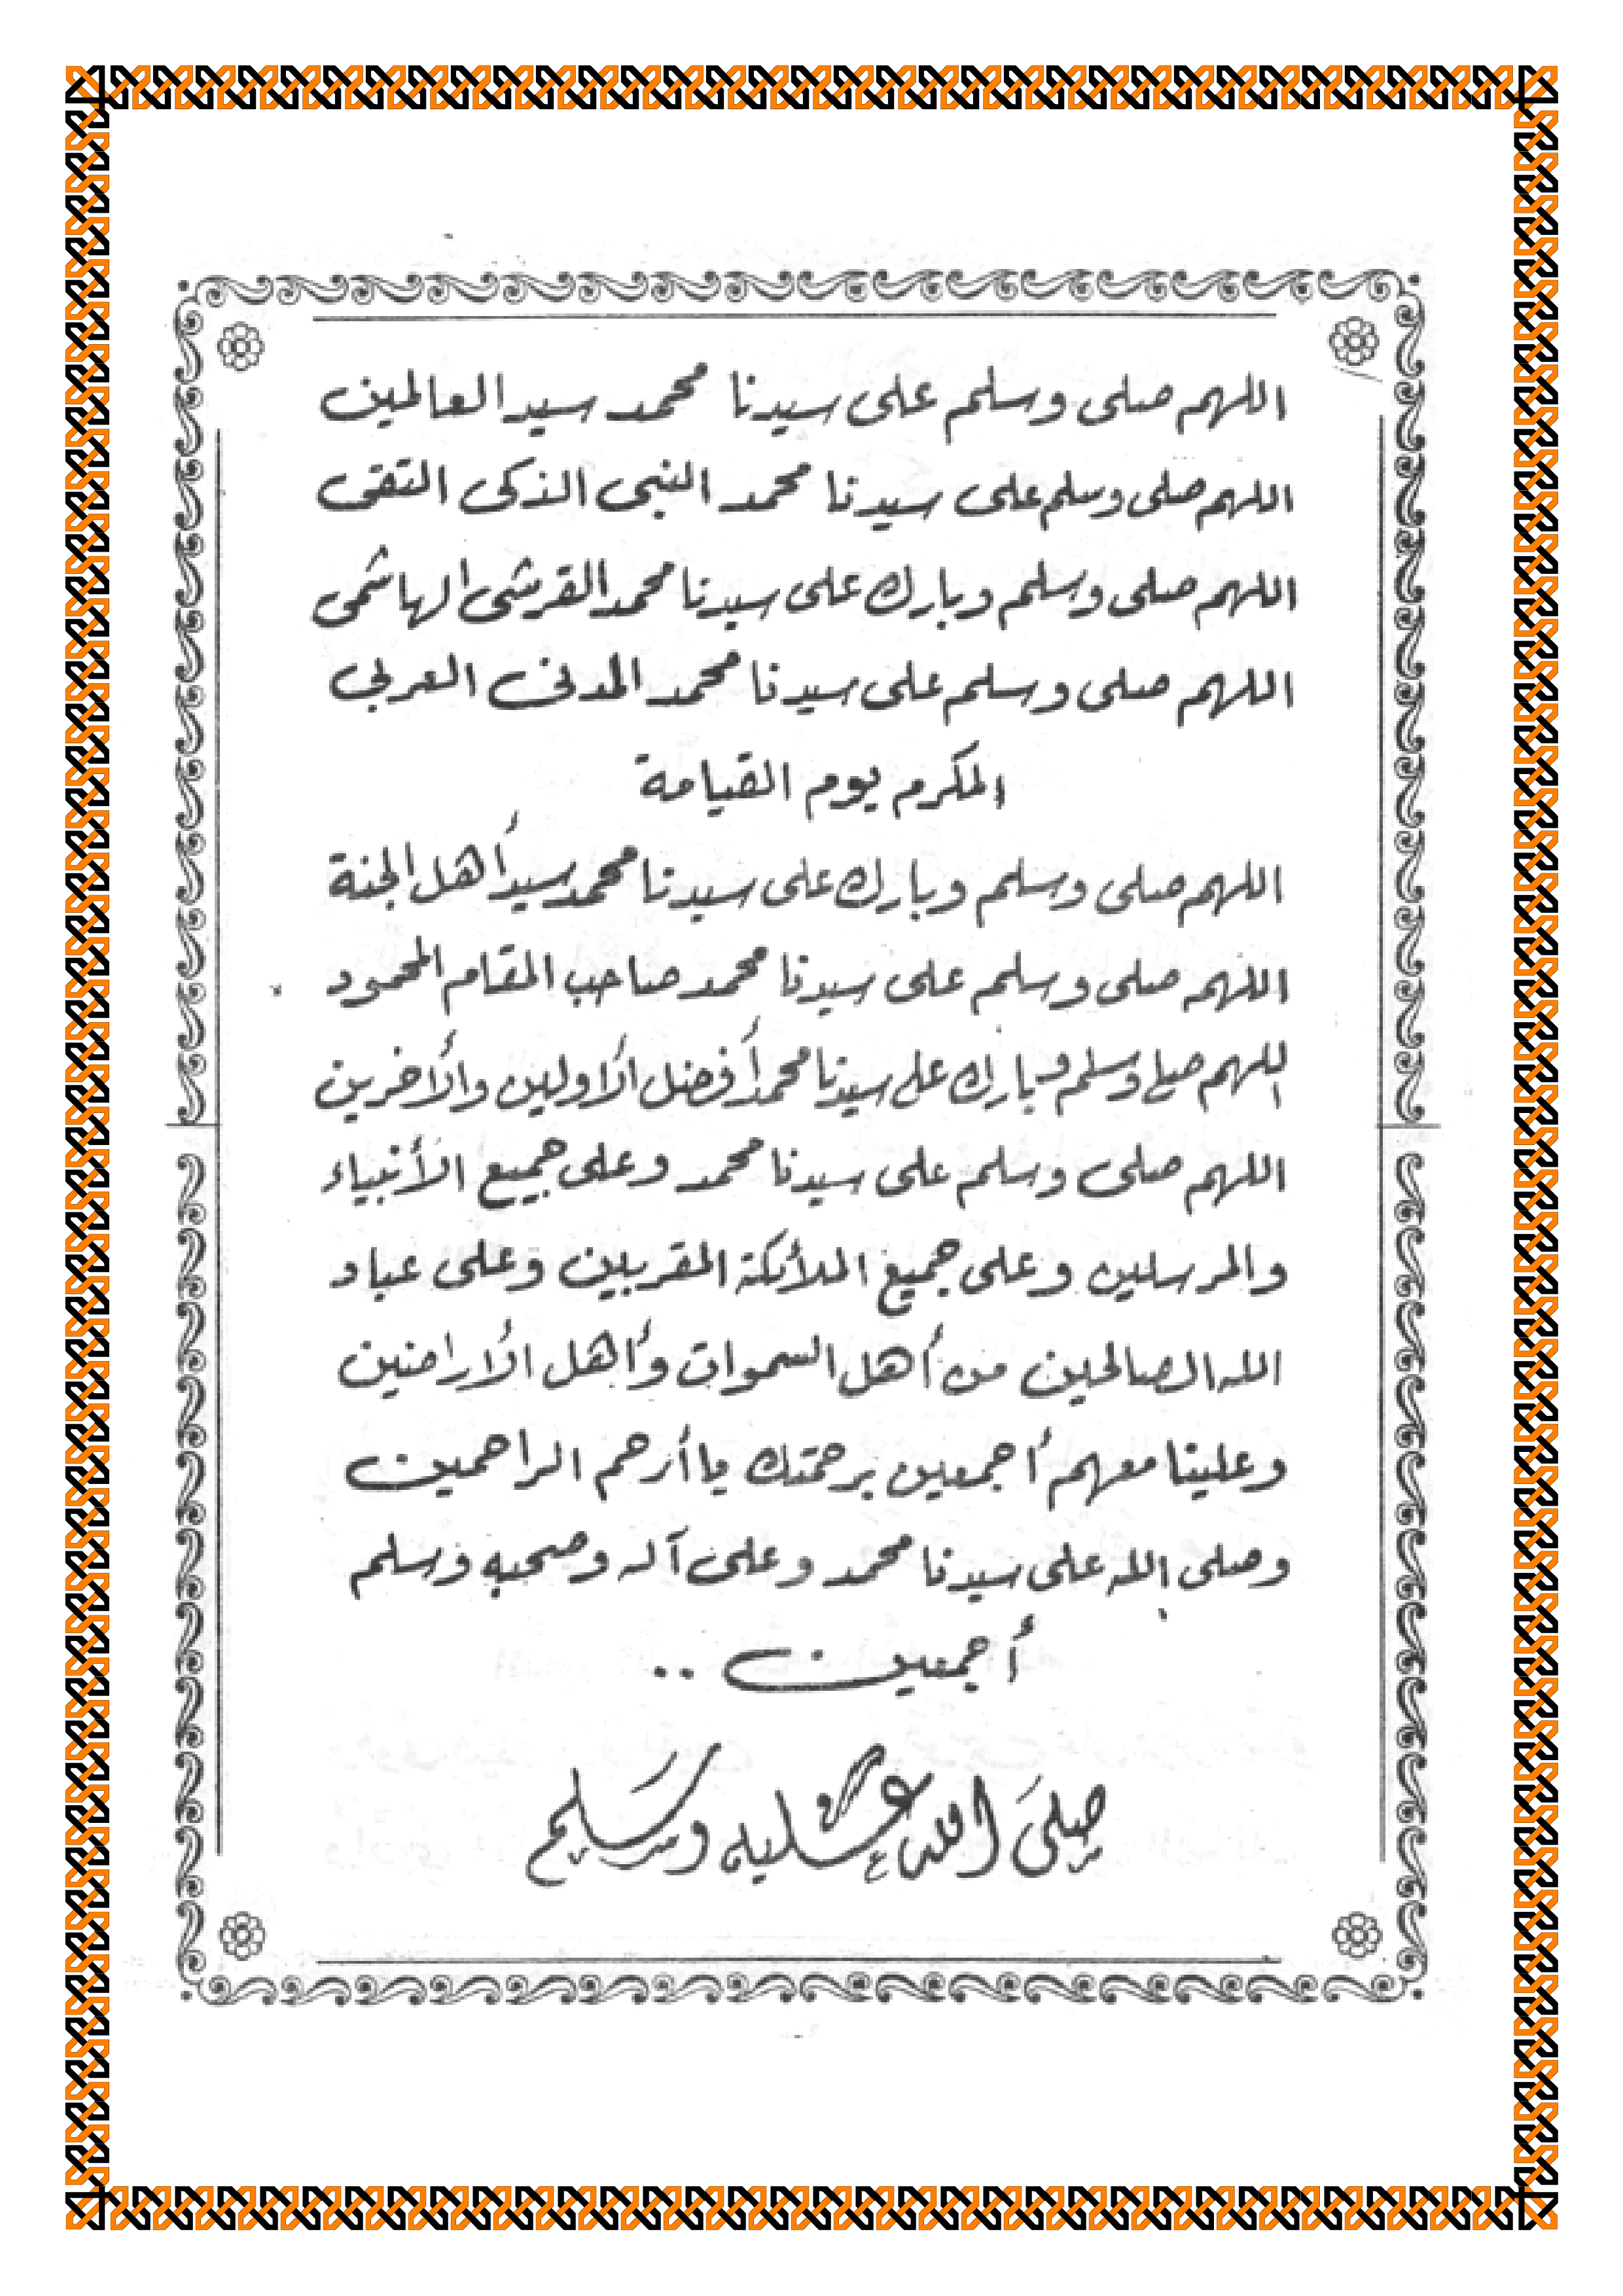 اللهم صلى وسلم على سيدنا محمد سيد العالمين
اللهم صلى وسلم على سيدنا محمد النبى الذكى التقى
اللهم صلى وسلم وبارك على سيدنا محمد القرشى الهاشمى
اللهم صلى وسلم على سيدنا محمد المدنى العربى
المكرم يوم القيامة
اللهم صلى وسلم وبارك على سيدنا محمد سيد أهل الجنة
اللهم صلى وسلم على سيدنا محمد صاحب المقام المحمود
اللهم صلى وسلم وبارك على سيدنا محمد أفضل الأولين والأخرين
اللهم صلى وسلم على سيدنا محمد وعلى جميع الأنبياء
والمرسلين وعلى جميع الملأئكة المقربين وعلى عباد
الله الصالحين من أهل السموات وأهل الأراضين
وعلينا معهم أجمعين برحمتك يا أرحم الراحمين
وصلى الله على سيدنا محمد وعلى آله وصحبه وسلم
أجمعين ..
صلى الله عليه وسلم